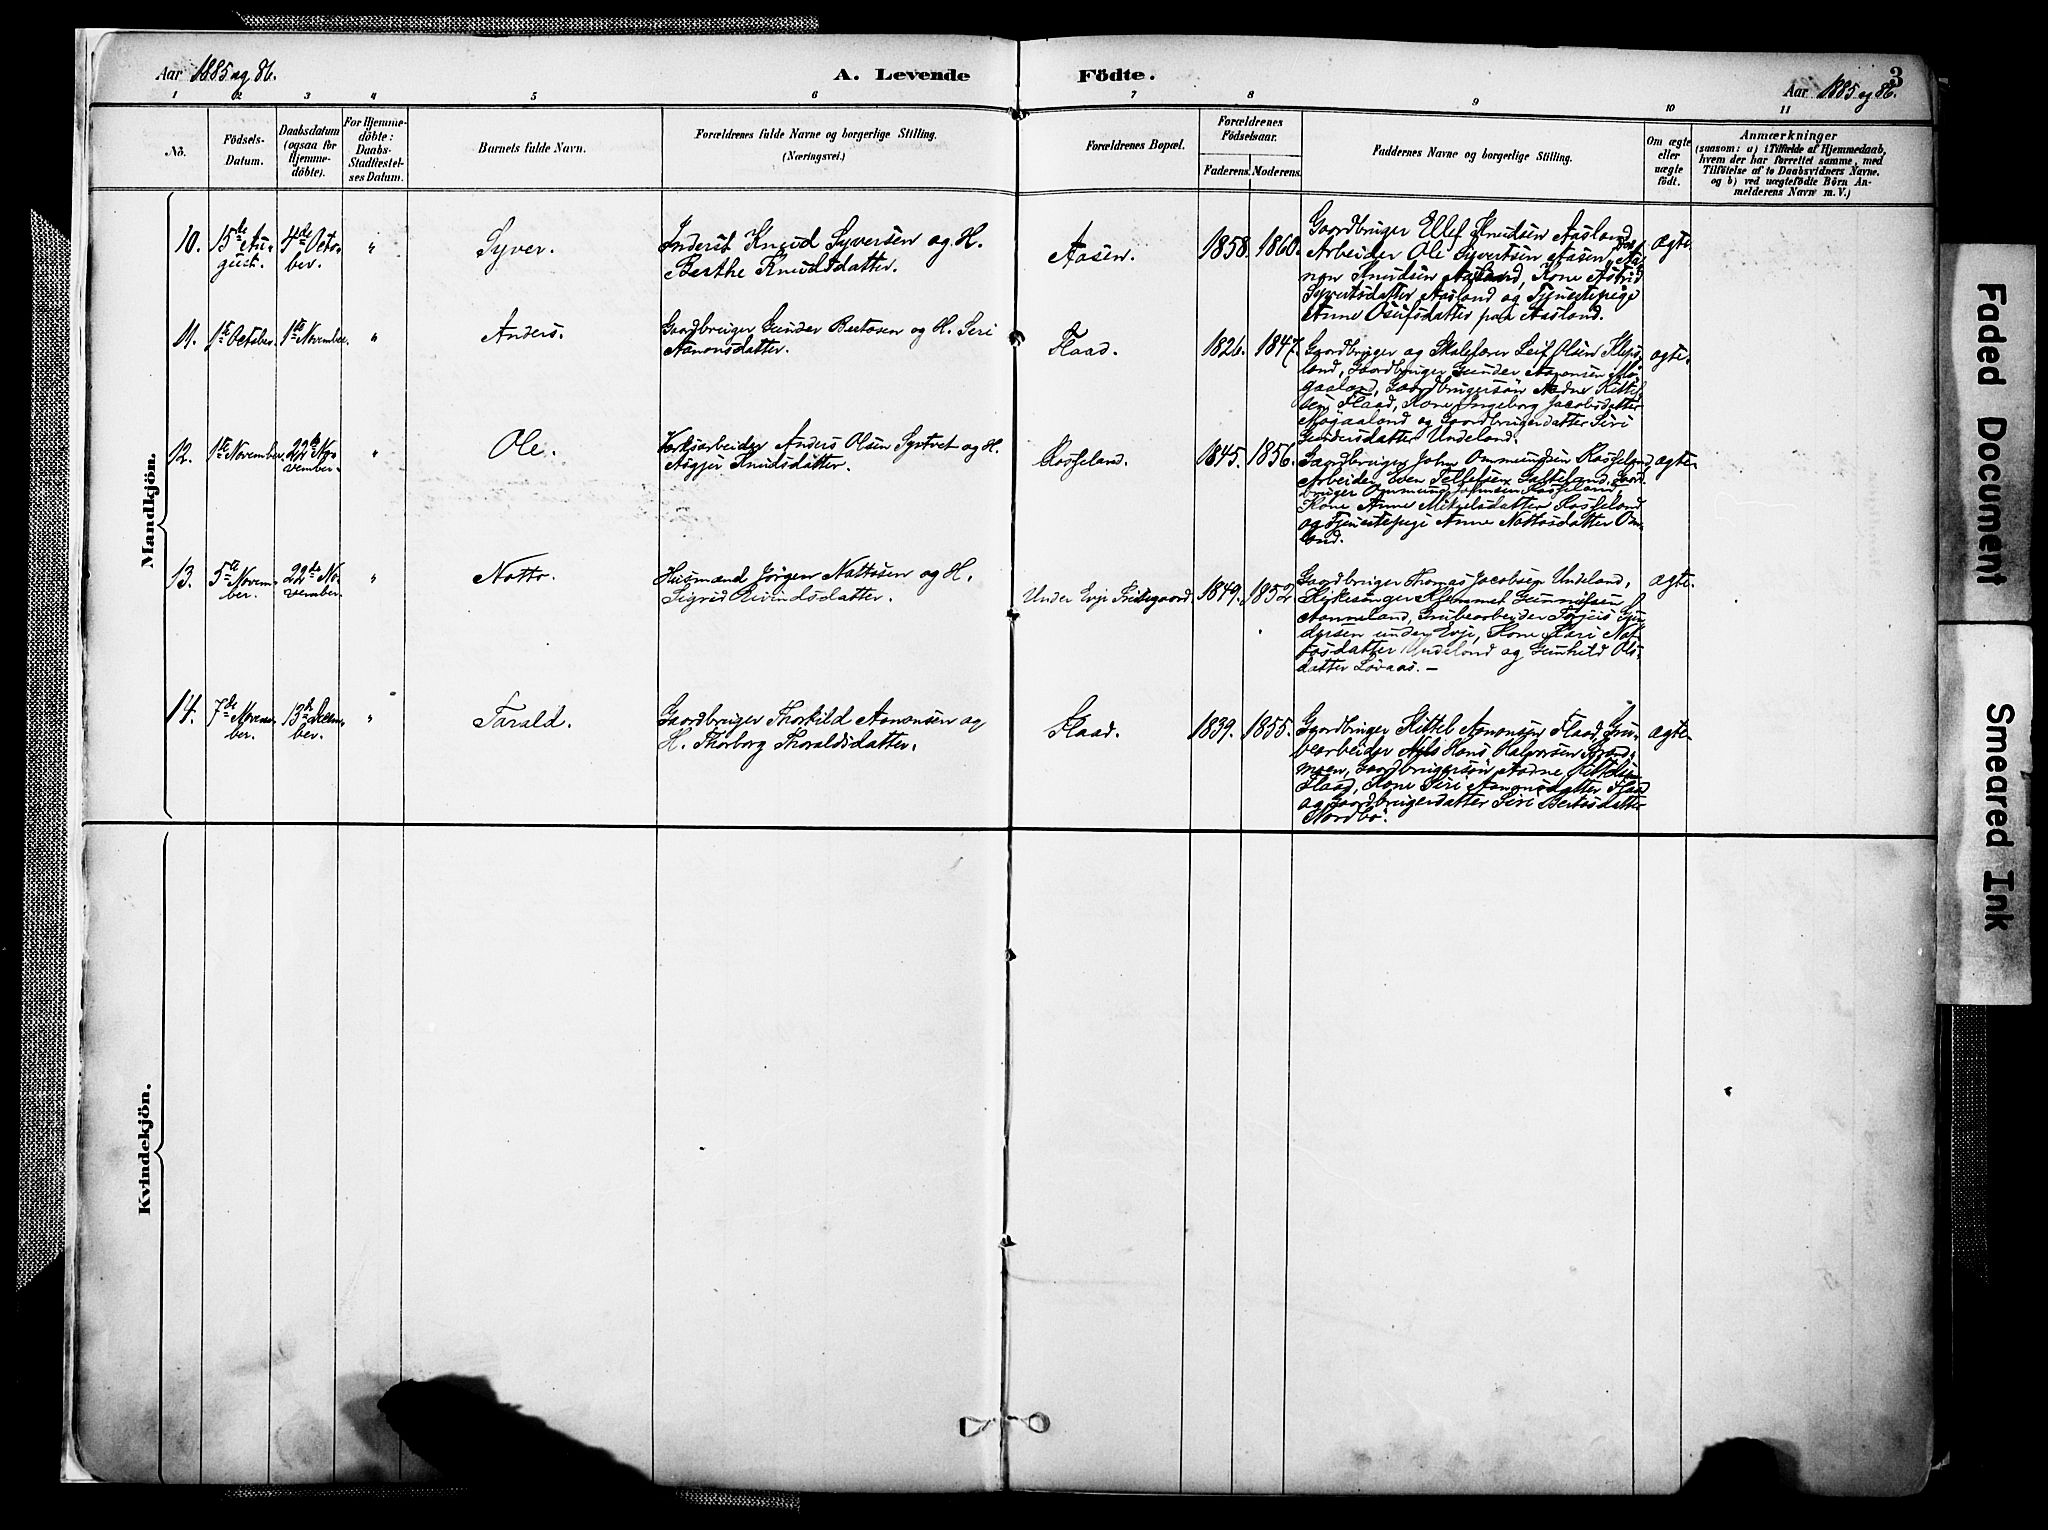 Aar 1885 og 86.
A. Levende Födte.
Aar 1885 og 86.
3
1 2 3 4 5 6 7 8 9 10 11
No.
Födsels-
Datum.
Daabsdatum
(ogsaa for
Hjemme-
döbte).
For Hjemme-
döbte:
Daabs-
Stadfæstel-
ses Datum.
Barnets fulde Navn.
Forældrenes fulde Navne og borgerlige Stilling.
(Næringsvei.)
Forældrenes Bopæl.
Forældrenes
Födselsaar.
Faderens. Moderens.
Faddernes Navne og borgerlige Stilling.
Om ægte
eller
uægte
födt.
Anmærkninger
(saasom: a) i Tilfælde af Hjemmedaab,
hvem der har forrettet samme, med
Tilföielse af to Daabsvidners Navne.
og b) ved uægtefödte Börn An-
melderens Navn m. V.)
Mandkjön.
10.
15de Au-
gust.
4de Octo-
ber.
"
Syver.
Inderst Knud Syversen og H.
Berthe Knudsdatter.
Aasen.
1858. 1860.
Gaardbruger Ellef Knudsen Aasland,
Arbeider Ole Syvertsen Aasen,
Knudsen Aasland, Kone Astrid
Syvertsdatter Aasland og Tjenestepige
Anne Osufsdatter paa Aasland.
ægte
11.
1ste October.
1ste November.
"
Anders.
Gaardbruger Gunder Bertosen og H. Siri
Aanonsdatter.
Flaad.
1826. 1847.
Gaardbruger og Skolelærer Leif Olsen Kleps-
land, Gaardbruger Gunder Aanonsen
Gaardbrugersön Kittel-
sen Flaad, Kone Ingeborg Jacobsdatter
og Gaardbrugerdatter Siri
Gundersdatter Undeland.
ægte.
12.
1ste November.
22de No-
vember.
"
Ole.
Værksarbeider Anders Olsen Syrtvet og H.
Asgjer Knudsdatter.
Rosseland.
1845. 1856.
Gaardbruger John Ommundsen Rosseland,
Arbeider Even Tellefsen Gaard-
bruger Ommund Johnsen Rosseland,
Kone Anne Mikelsdatter Rosseland
og Tjenestepige Anne Nottosdatter Om-
land.
ægte
13.
5te Novem-
ber.
22de No-
vember.
"
Notto.
Husmand Jörgen Nottosen og H.
Sigrid Eivindsdatter.
Under Evje Præstegaard.
1849. 1852
Gaardbruger Thomas Jacobsen Undeland,
Kirkesanger Gunnufsen
Grubearbeider
under Evje, Kone Kari Not-
tosdatter Undeland og Gunhild Ols-
datter Lövaas. —
ægte.
14.
7de Novem-
ber.
13de Decem-
ber.
"
Tarald.
Gaardbruger Thorkild Aanonsen og
H. Thorborg Tharaldsdatter.
Flaad.
1839. 1855.
Gaardbruger Kittel Aanonsen Flaad, Gru-
bearbeider Nils Hans Halvorsen
Gaardbrugersön Aadne Kittelsen
Flaad, Kone Siri Aanonsdatter Flaad
og Gaardbrugerdatter Siri Bertosdatter
Nordbö.
ægte
Kvindekjön.
Faded Document
Smeared Ink